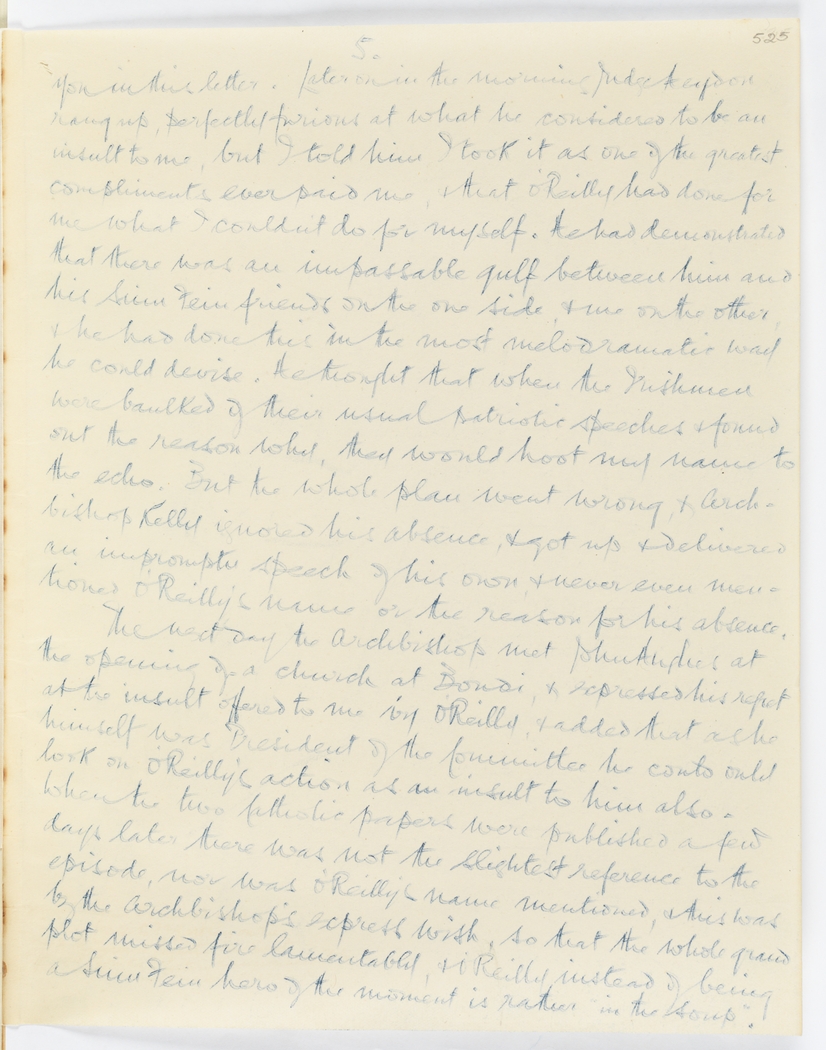 525
5.
you in this letter. Later on in the morning Judge Heydon
rang up, perfectly furious at what he considered to be an
insult to me, but I told him I took it as one of the greatest
compliments ever paid me, & that O'Reilly had done for
me what I couldn't do for myself. He had demonstrated
that there was an impassable gulf between him and
his Sinn Fein friends on the one side, & me on the other,
& he had done this in the most melodramatic way
he could devise. He thought that when the Irishmen
were baulked of their usual patriotic speeches & found
out the reason why, they would hoot my name to
the echo. But the whole plan went wrong, & Arch-
bishop Kelly ignored his absence, & got up & delivered
an impromptu speech of his own, & never even men-
tioned O'Reilly's name or the reason for his absence.
The next day the Archbishop met John Hughes at
the opening of a church at Bondi, & expressed his regret
at the insult offered to me by O'Reilly, & added that as he
himself was President of the Committee he could only
look on O'Reilly's action as an insult to him also.
When the two Catholic papers were published a few
days later there was not the slightest reference to the
episode, nor was O'Reilly's name mentioned, & this was
by the Archbishop's express wish, so that the whole grand
plot missed fire lamentably, & O'Reilly instead of being
a Sinn Fein hero of the moment is rather "in the soup"!